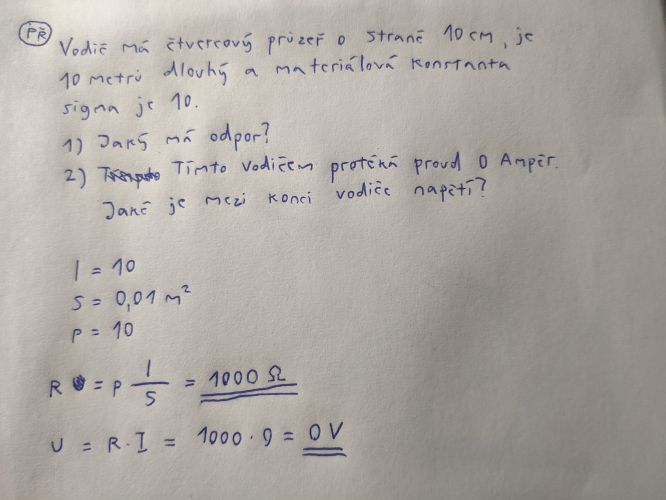 PŘ
Vodič má čtvercový průřeř o straně 10 cm, je
10 metrů dlouhý a materiálová konstanta
sigma je 10.
1) Jaký má odpor?
2) Tímto vodičem protéká proud 0 Ampér.
Jaké je mezi konci vodiče napětí?
l = 10
S = 0,01 m²
ρ = 10
R = ρ l/S = 1000 Ω
U = R·I = 1000 · 0 = 0 V